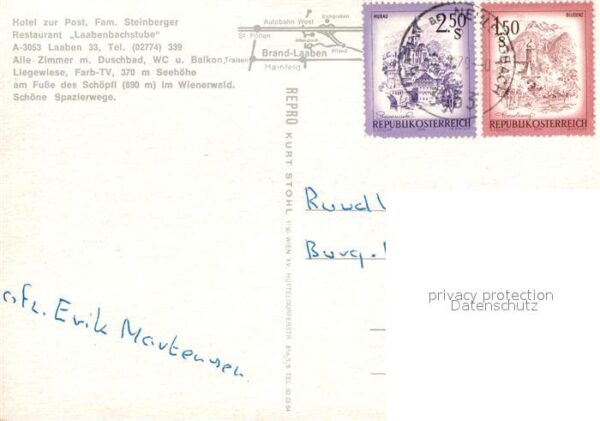 Hotel zur Post, Fam. Steinberger
Restaurant „Laabenbachstube"
A-3053 Laaben 33, Tel. (02774) 339
Alle Zimmer m. Duschbad, WC u. Balkon,
Liegewiese, Farb-TV, 370 m Seehöhe
am Fuße des Schöpfl (890 m) im Wienerwald.
Schöne Spazierwege.
Autobahn West
St. Pölten
Brand-Laaben
Altland
Traisen
Hainfeld
MURAU
2.50
S
REPUBLIK ÖSTERREICH
BLUDENZ
1.50
S
REPUBLIK ÖSTERREICH
3053
REPRO KURT STOHL
1130 WIEN XV, HÜTTELDORFERSTR.
TEL.
Burg.
Erik Martensen
privacy protection
Datenschutz